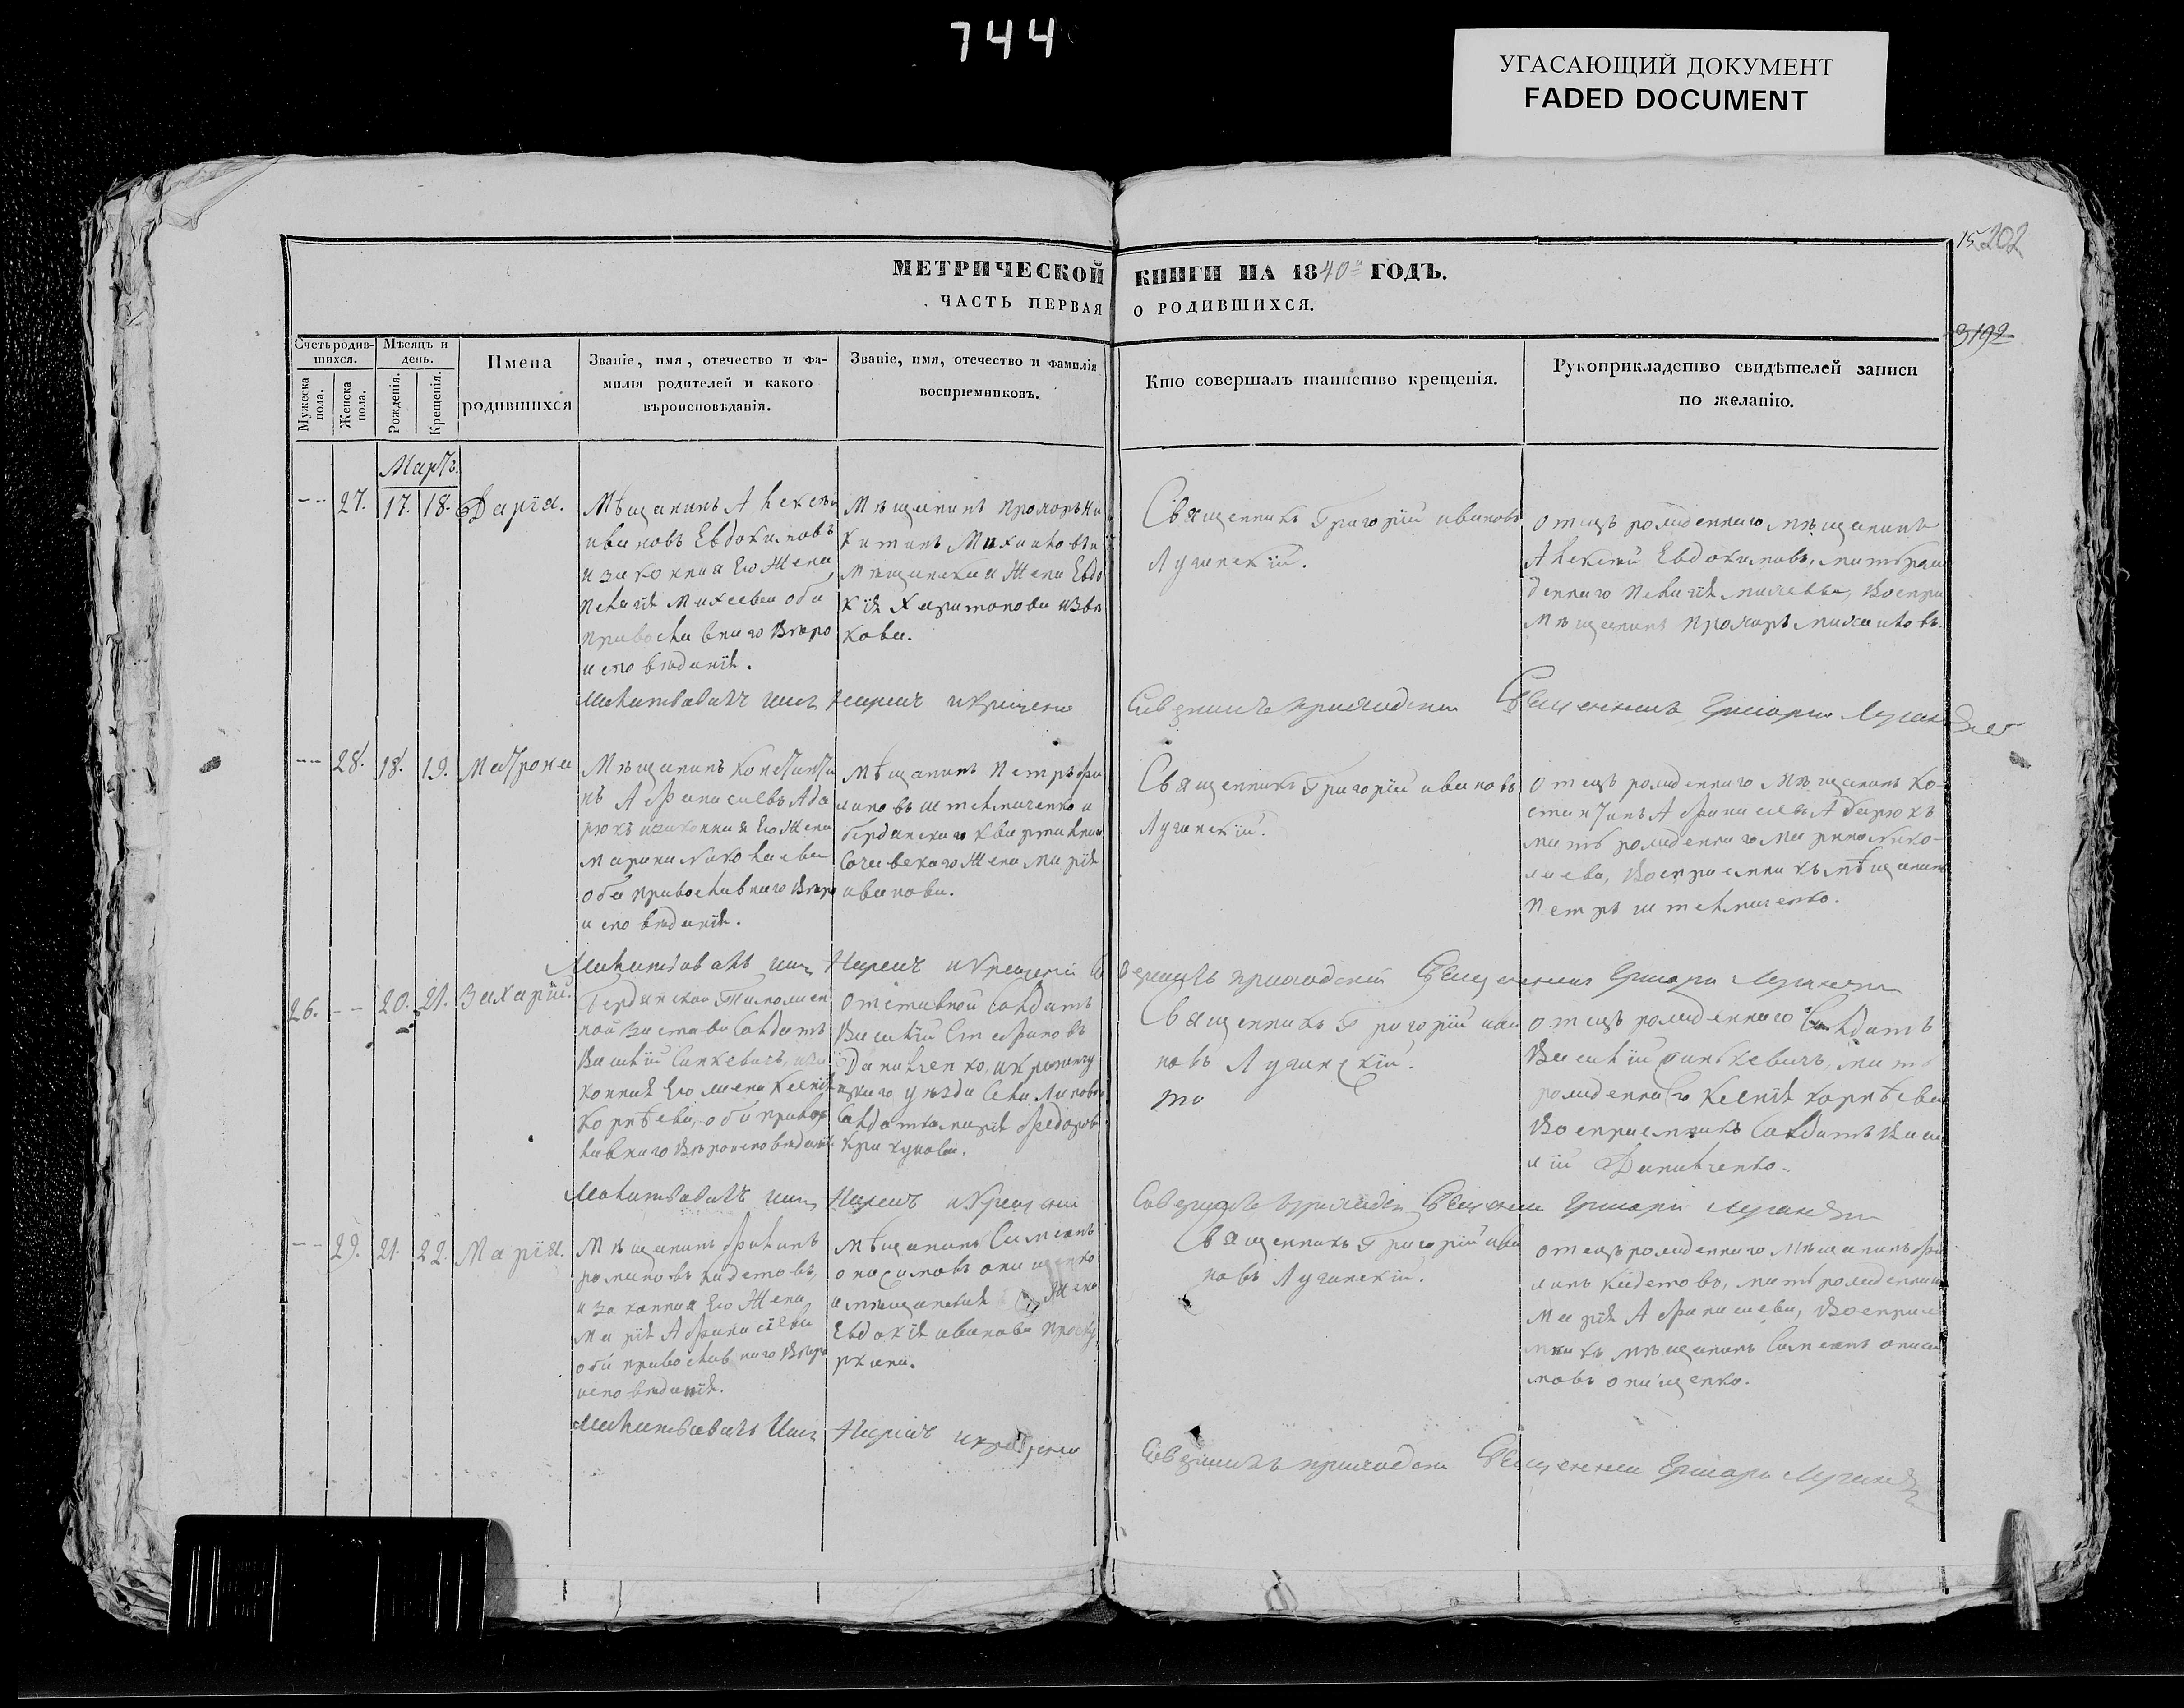 744
УГАСАЮЩИЙ ДОКУМЕНТ
FADED DOCUMENT
15 202
3192
МЕТРИЧЕСКОЙ КНИГИ НА 1840й ГОДЪ.
ЧАСТЬ ПЕРВАЯ О РОДИВШИХСЯ.
Счетъ родив-
шихся.
Мужеска
пола.
Женска
пола.
Мѣсяцъ и
день.
Рожденія.
Крещенія.
Имена
родившихся
Званіе, имя, отечество и фа-
милія родителей и какого
вѣроисповѣданія.
Званіе, имя, отечество и фамилія
воспріемниковъ.
Кто совершалъ таинство крещенія.
Рукоприкладство свидѣтелей записи
по желанію.
Мартъ.
-- 27. 17. 18. Дарія.
Мѣщанинъ Алексѣй
ивановъ Евдокимовъ
и законная Его Жена
Пелагія Михеева оба
православнаго Вѣро
исповѣданія.
Мѣщанинъ Прохоръ Ни
китинъ Михаиловъ и
мѣщанская Жена Евдо
кія Харитонова
кова.
Священникъ Григорій ивановъ
Лучинскій.
отецъ рожденнаго мѣщанинъ
Алексѣй Евдокимовъ, мать рож
деннаго Пелагія михеева, Воспри
мѣщанинъ Прохоръ михаиловъ
Молитвовалъ имя Нарекъ и крещеніе Совершилъ приходскій Священникъ Григорій
-- 28. 18. 19. Матрона
Мѣщанинъ Константи
нъ Афанасіевъ
и законная Его Жена
Марина Николаева
оба православнаго Вѣро
исповѣданія.
Мѣщанинъ Петръ Фи
липовъ и
бердянскаго
Жена Марія
иванова.
Священникъ Григорій ивановъ
Лучинскій.
отецъ рожденнаго Мѣщанинъ Ко-
стантинъ Афанасіевъ
мать рожденнаго Марина Нико-
лаева, Воспріемникъ мѣщанинъ
Петръ
Молитвовалъ имя Нарекъ и Крещеніе Совершилъ приходскій Священникъ Григорій
26. -- 20. 21. Захарій.
Бердянской Таможен
ной Заставы Солдатъ
Василій Синкевичъ, и за
конная Его жена Ксенія
Корнѣева, оба право
славнаго Вѣроисповѣданія
отставной Солдатъ
Василій Стефановъ
Данильченко, и
уѣзда Села
Солдатка Марія Федорова
Крикунова.
Священникъ Григорій ива
новъ Лучинскій.
то
отецъ рожденнаго Солдатъ
Василій Синькевичъ, мать
рожденнаго Ксенія Корнѣева
Воспріемникъ Солдатъ Васи
лій Данильченко.
Молитвовалъ имя Нарекъ и Крещеніе Совершилъ приходскій Священникъ Григорій
-- 29. 21. 22. Марія.
Мѣщанинъ Филипъ
романовъ Кидетовъ,
и законная Его Жена
Марія Афанасіева
оба православнаго Вѣро
исповѣданія.
Мѣщанинъ Симеонъ
онасимовъ онищенко
и мѣщанская Жена
Евдокія иванова Проску
рина.
Священникъ Григорій ива
новъ Лучинскій.
отецъ рожденнаго Мѣщанинъ Фи
липъ Кидетовъ, мать рожденнаго
Марія Афанасіева, Воспріе
мникъ мѣщанинъ Симеонъ онаси
мовъ онищенко.
Молитвовалъ Имя Нарекъ и крещеніе Совершилъ приходскій Священникъ Григорій